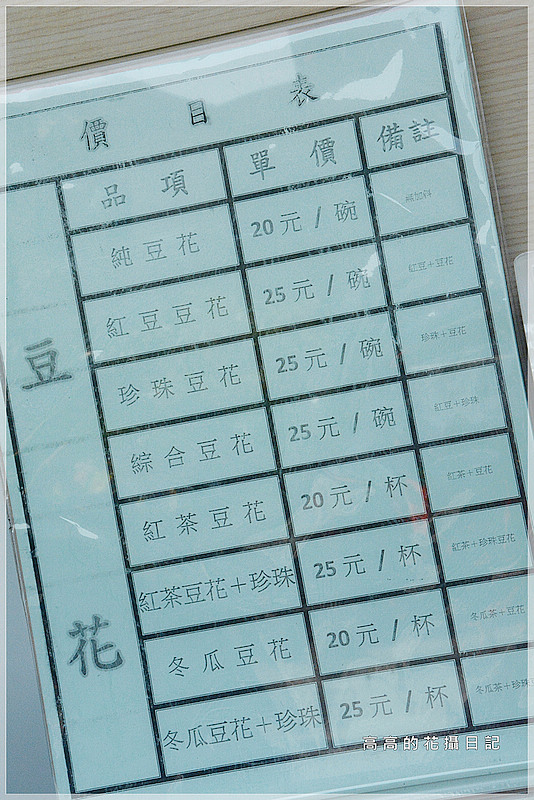 價 目 表
豆 花
品 項 單 價 備註
純 豆 花 20 元 / 碗 無加料
紅 豆 豆 花 25 元 / 碗 紅豆+豆花
珍 珠 豆 花 25 元 / 碗 珍珠+豆花
綜 合 豆 花 25 元 / 碗 紅豆+珍珠
紅 茶 豆 花 20 元 / 杯 紅茶+豆花
紅茶豆花+珍珠 25 元 / 杯 紅茶+珍珠豆花
冬 瓜 豆 花 20 元 / 杯 冬瓜茶+豆花
冬瓜豆花+珍珠 25 元 / 杯 冬瓜茶+珍珠
高高的花攝日記